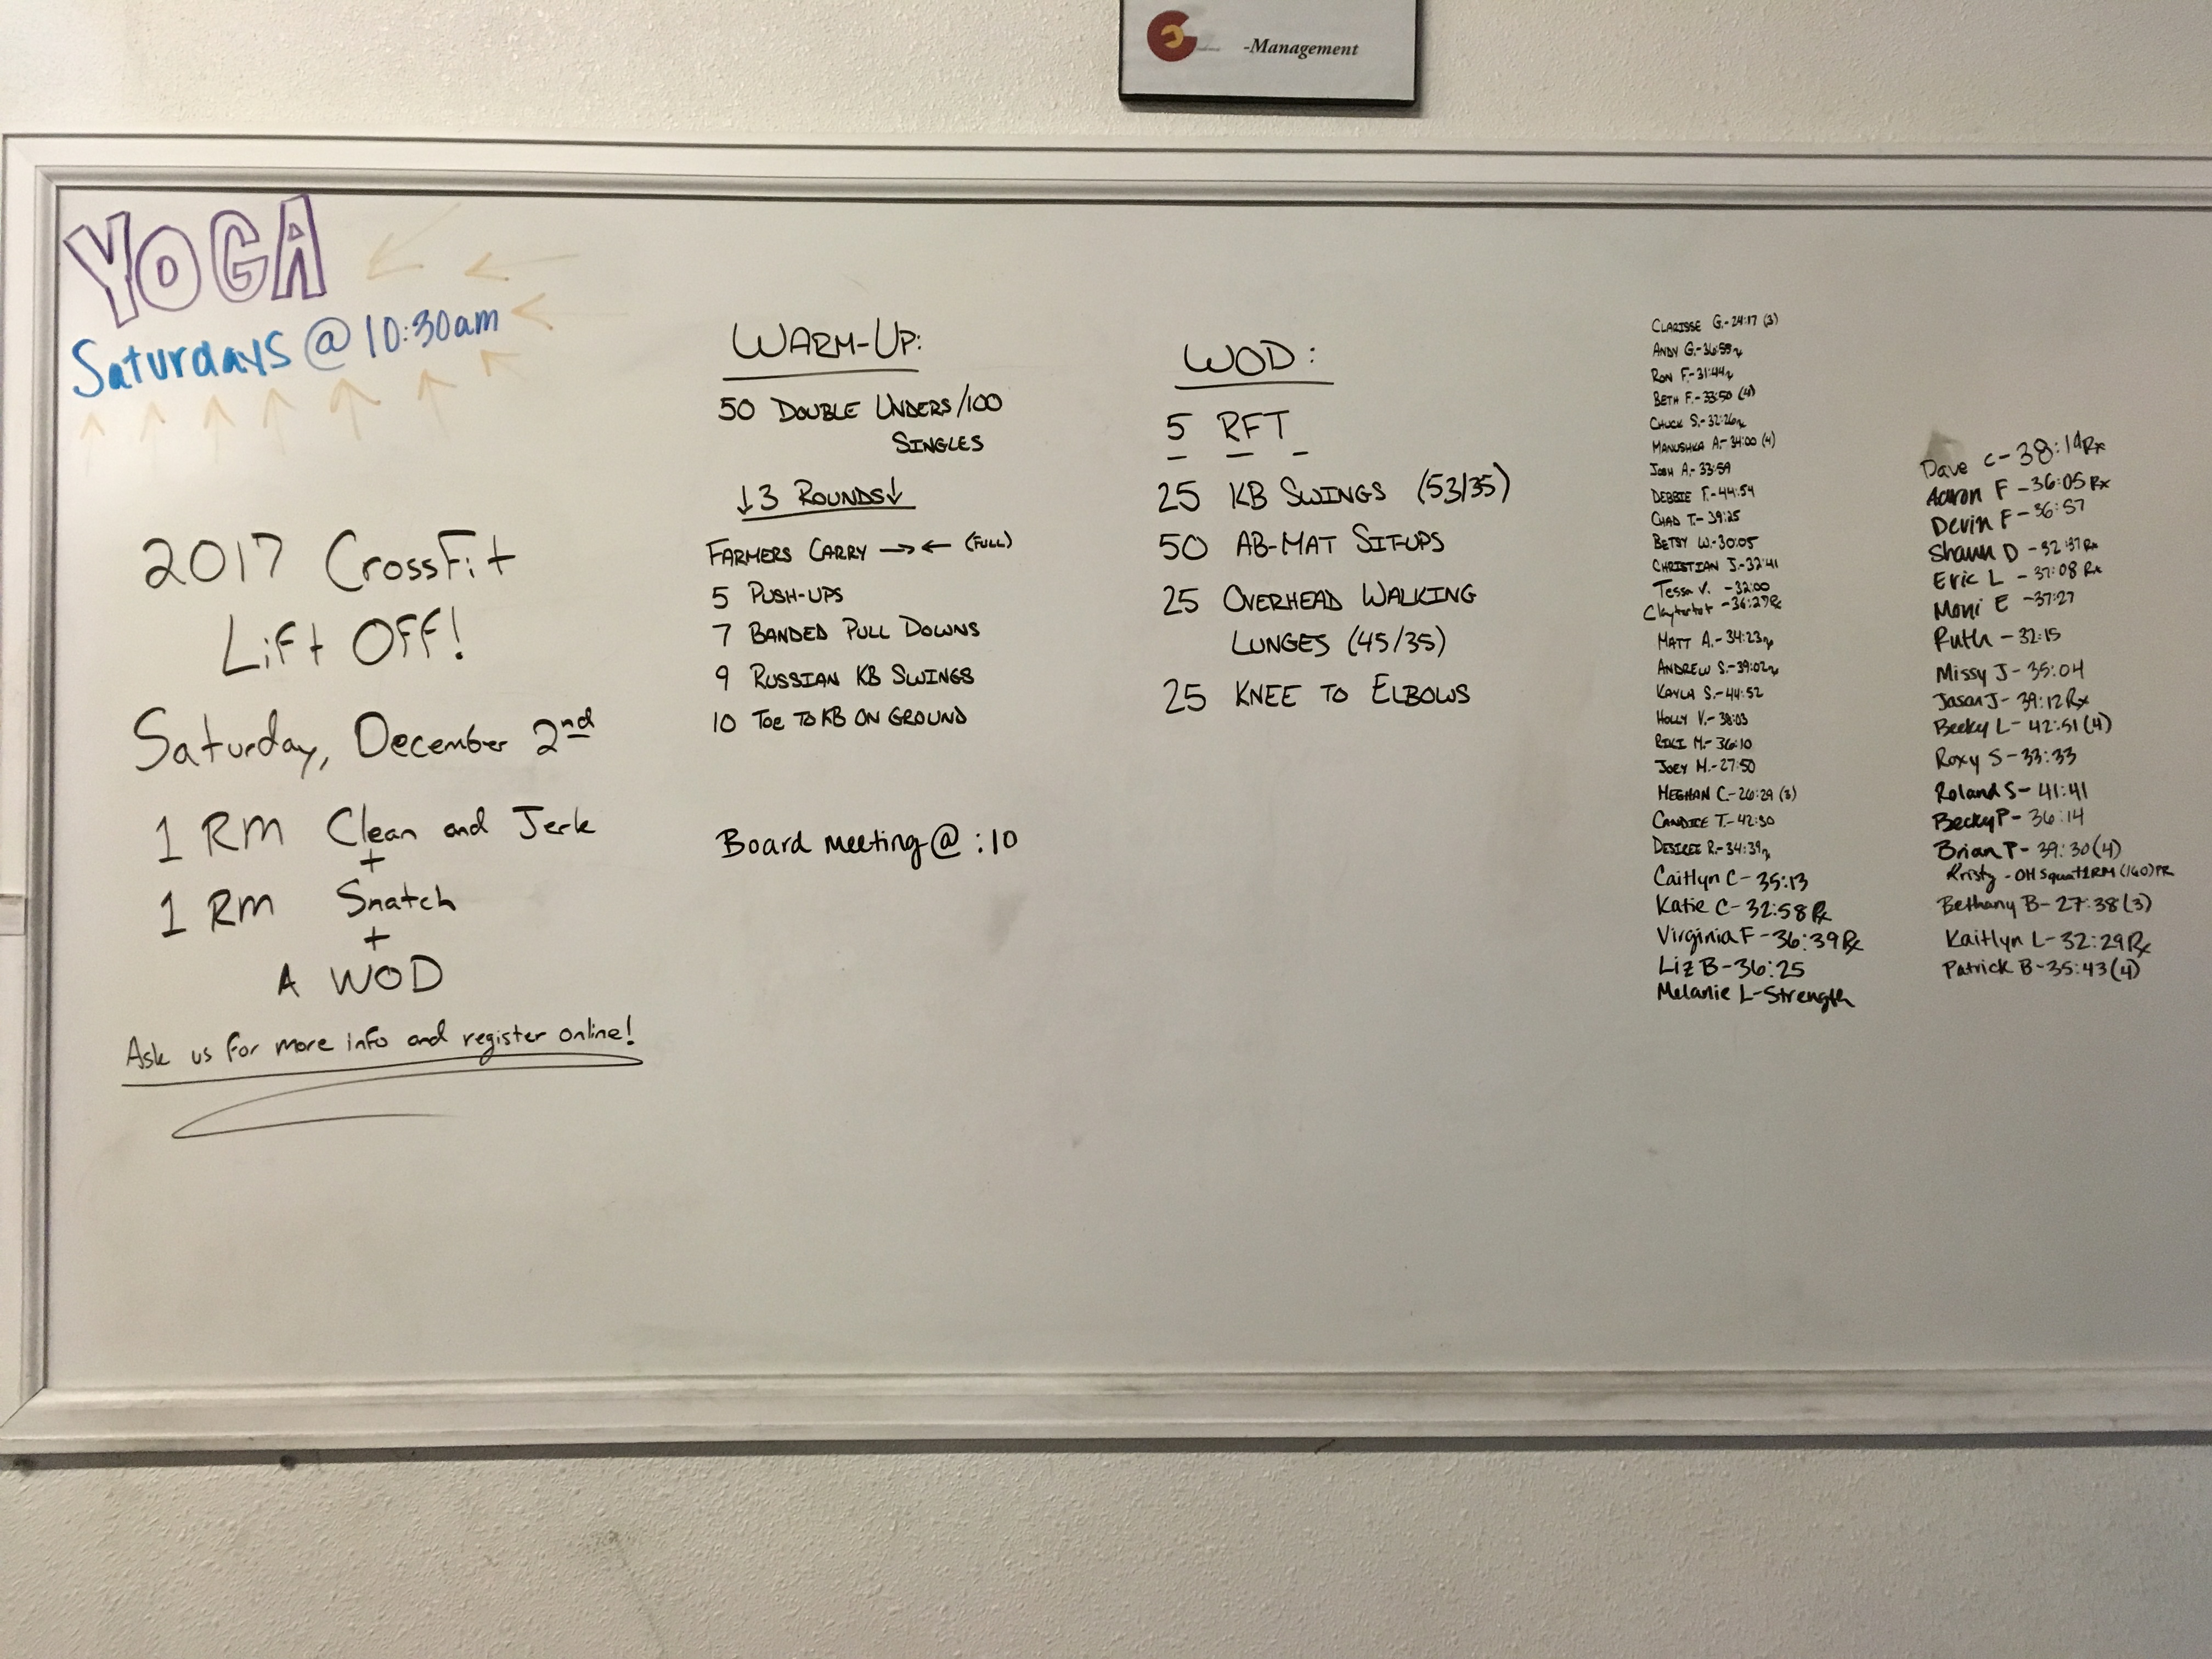 -Management
YOGA
Saturdays @ 10:30am
2017 CrossFit
Lift Off!
Saturday, December 2nd
1 RM Clean and Jerk
+
1 RM Snatch
+
A WOD
Ask us for more info and register online!
WARM-UP:
50 DOUBLE UNDERS/100
SINGLES
↓3 ROUNDS↓
FARMERS CARRY →← (FULL)
5 PUSH-UPS
7 BANDED PULL DOWNS
9 RUSSIAN KB SWINGS
10 TOE TO KB ON GROUND
Board meeting @ :10
WOD:
5 RFT
25 KB SWINGS (53/35)
50 AB-MAT SIT-UPS
25 OVERHEAD WALKING
LUNGES (45/35)
25 KNEE TO ELBOWS
CLARISSE G.-24:17 (3)
ANDY G.-36:55Rx
RON F.-31:44Rx
BETH F.-33:50 (4)
CHUCK S.-32:26Rx
MANUSHKA A.-34:00 (4)
JOSH A.-33:59
DEBBIE F.-44:54
CHAD T.-39:25
BETSY W.-30:05
CHRISTIAN J.-32:41
Tessa V. -32:00
Claytortot -36:27Rx
MATT A.-34:23Rx
ANDREW S.-39:02Rx
KAYLA S.-44:52
HOLLY V.-38:03
RIKI M.-36:10
JOEY M.-27:50
MEGHAN C.-26:29 (3)
CANDICE T.-42:30
DESIREE R.-34:39Rx
Caitlyn C-35:13
Katie C-32:58Rx
Virginia F-36:39Rx
Liz B-36:25
Melanie L-Strength
Dave C-38:14Rx
Aaron F-36:05Rx
Devin F-36:57
Shawn D-32:37Rx
Eric L-37:08Rx
Moni E-37:27
Ruth-32:15
Missy J-35:04
Jason J-39:12Rx
Becky L-42:51(4)
Roxy S-33:33
Roland S-41:41
Becky P-36:14
Brian P-39:30(4)
Kristy-OH Squat 1RM (160) PR
Bethany B-27:38(3)
Kaitlyn L-32:29Rx
Patrick B-35:43(4)